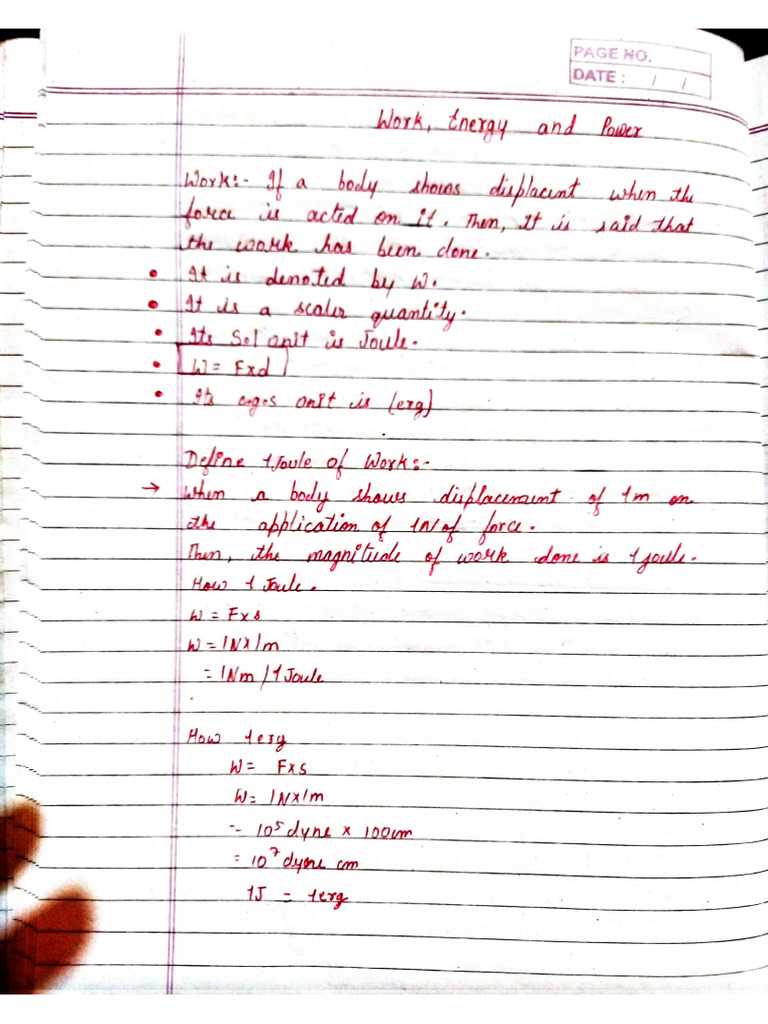 PAGE NO.
DATE : / /
Work, Energy and Power
Work:- If a body shows displacent when the
force is acted on it. Then, It is said that
the work has been done.
• It is denoted by W.
• It is a scaler quantity.
• Its S.I unit is Joule.
• W = Fxd
• Its unit is (erg)
Define 1 Joule of Work:-
→ When a body shows displacement of 1m on
the application of 1N of force.
Then, the magnitude of work done is 1 joule.
How 1 Joule.
W = Fxs
W = 1Nx1m
= 1Nm / 1 Joule
How 1 erg
W = Fxs
W = 1Nx1m
= 10⁵ dyne x 100cm
= 10⁷ dyne cm
1J = 1erg